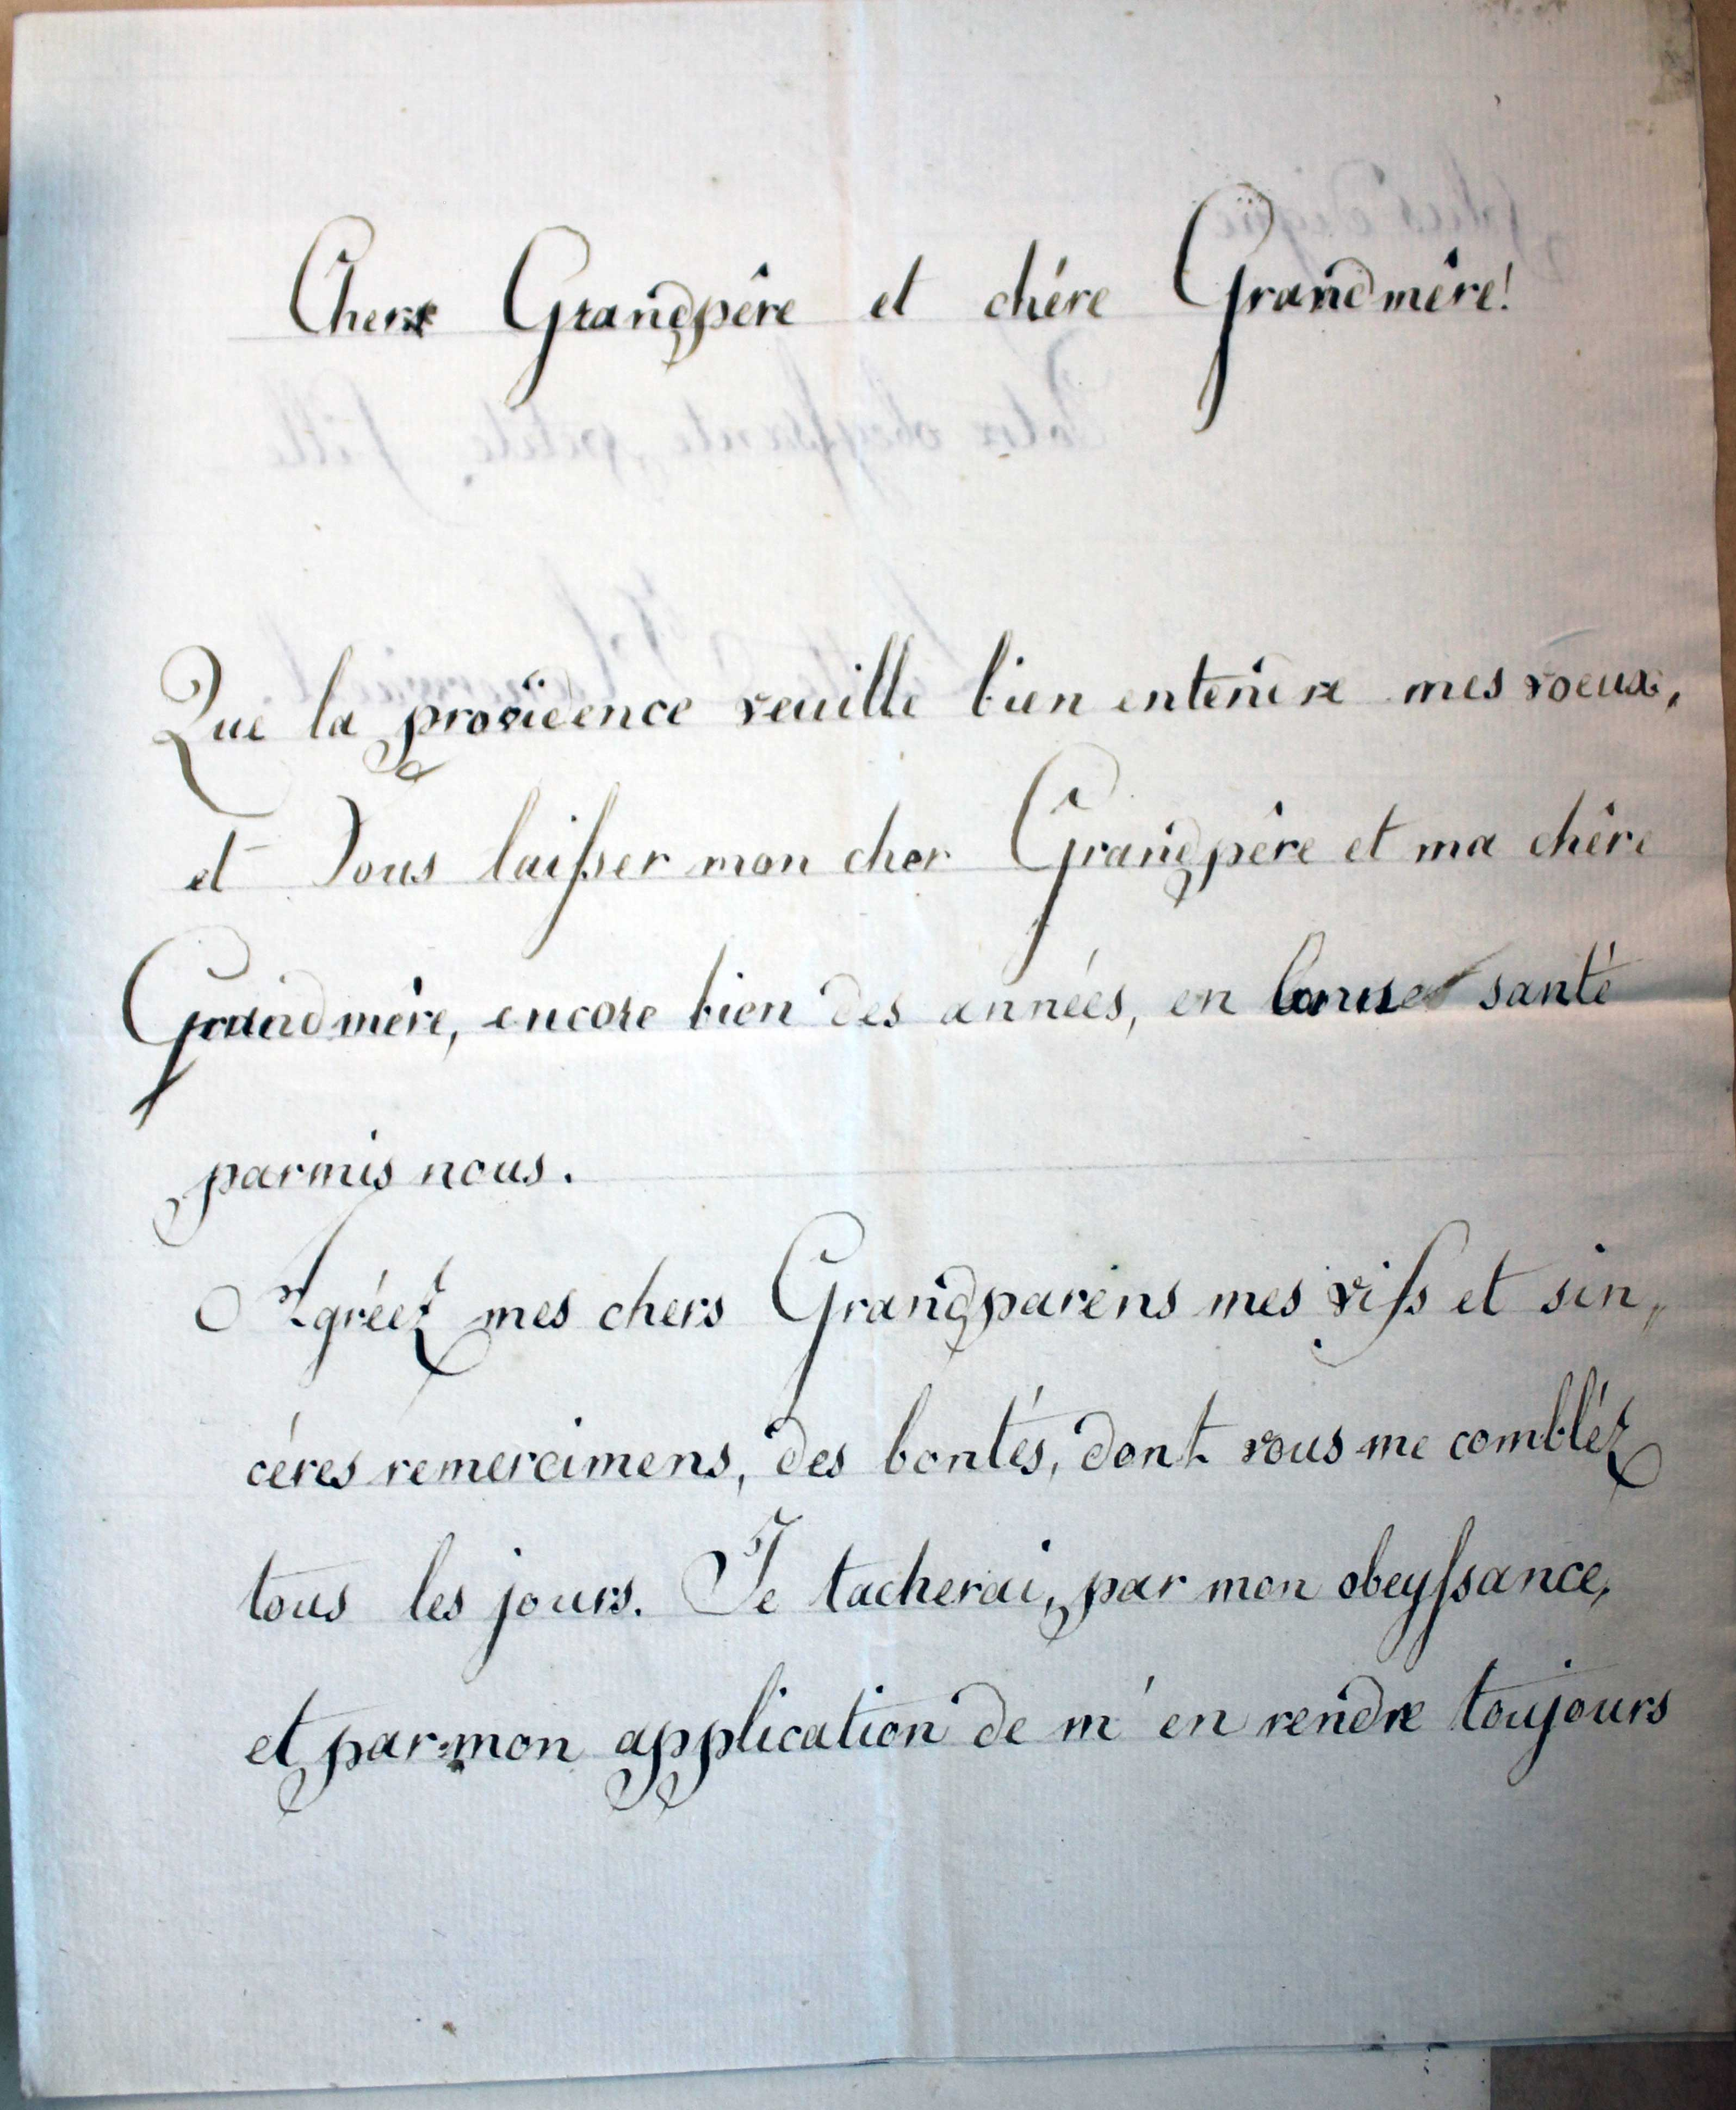 Cher Grandpêre et chére Grandmêre!
Que la providence veuille bien entendre mes voeux,
et Vous laiſser mon cher Grandpêre et ma chêre
Grandmêre, encore bien des années, en bonne santé
parmis nous.
Agréez mes chers Grandparens mes vifs et sin„
céres remercimens, des bontés, dont vous me combléz
tous les jours. Je tacherai, par mon obeyſsance,
et par mon application de m'en rendre toujours